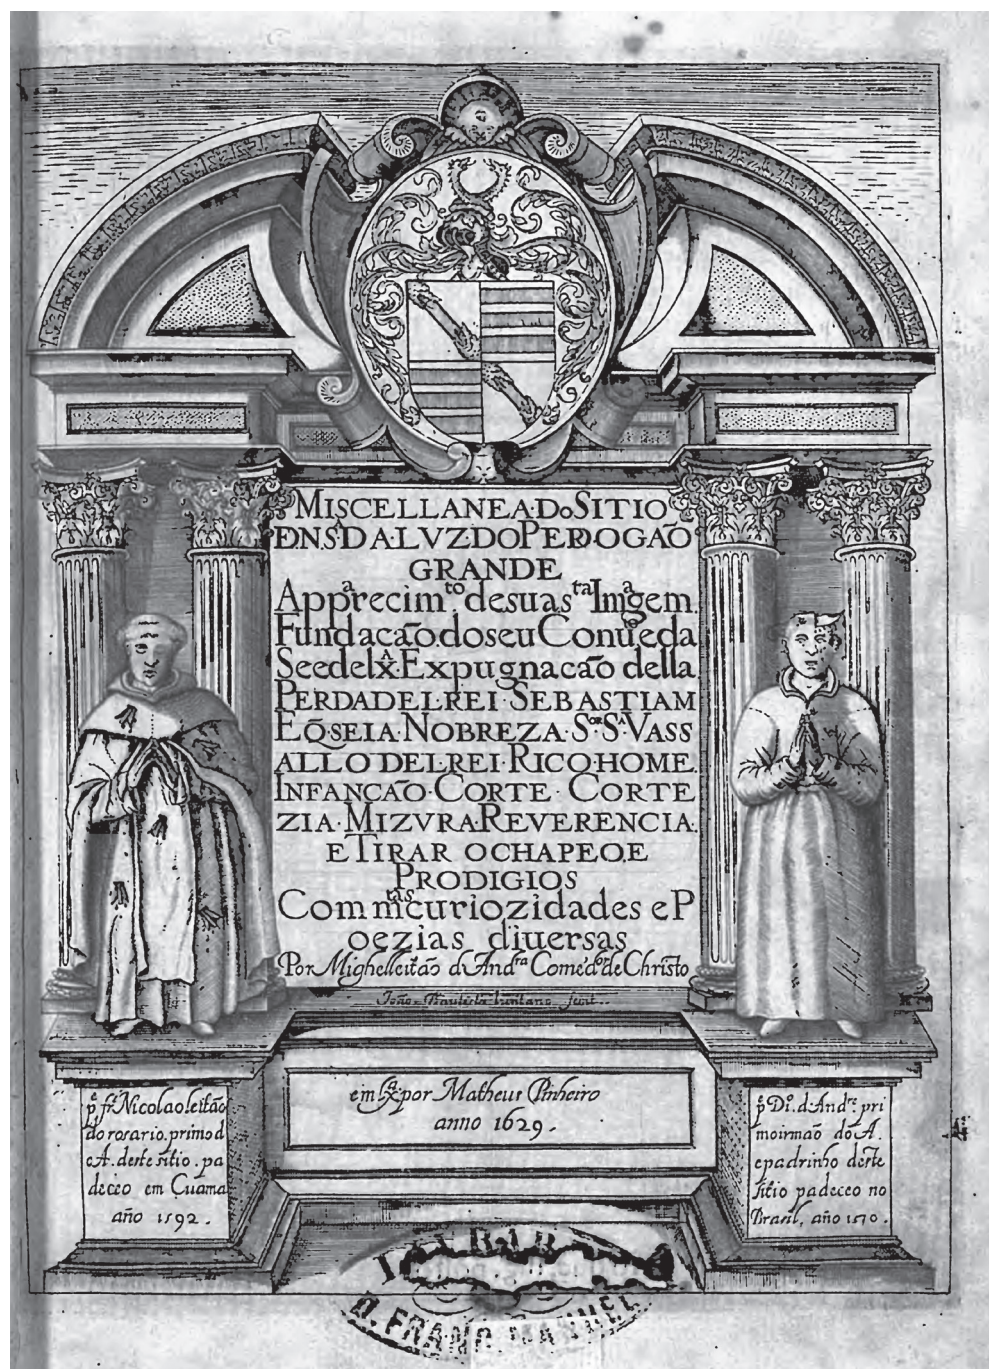 MISCELLANEA·DoSITIO
D·N·Sᴬ·DA·LVZ·DO PEDROGÃO
GRANDE
Apparecimᵗᵒ desua sᵗᵃ Imagem.
Fundacaõ do seu Conuẽto eda
See de lxᴬ Expugnacaõ della
PERDA DELREI·SEBASTIAM
E Q̃·SEIA·NOBREZA·Sᵒʳ·Sᴬ·VASS
ALLO DELREI·RICO·HOME.
INFANCAÕ·CORTE·CORTE
ZIA·MIZVRA·REVERENCIA.
E TIRAR O CHAPEO·E
PRODIGIOS
Com mᵗᵃˢ curiozidades e P
oezias diuersas
Por Mighel leitaõ d'Andʳᵃ Comẽdᵒʳ de Christo
João Bautista fecit.
em lxᵃ por Matheus Pinheiro
anno 1629.
p̃ frͥ Nicolao leitaõ
do rosario. primo d
o A. deste sitio. pa
deceo em Cuama
año 1592.
p̃ Dᵒ. d'Andʳᵉ. pri
moirmaõ do A.
e padrinho deste
sitio padeceo no
Brasil, año 1570.
D. FRANC. MANUEL